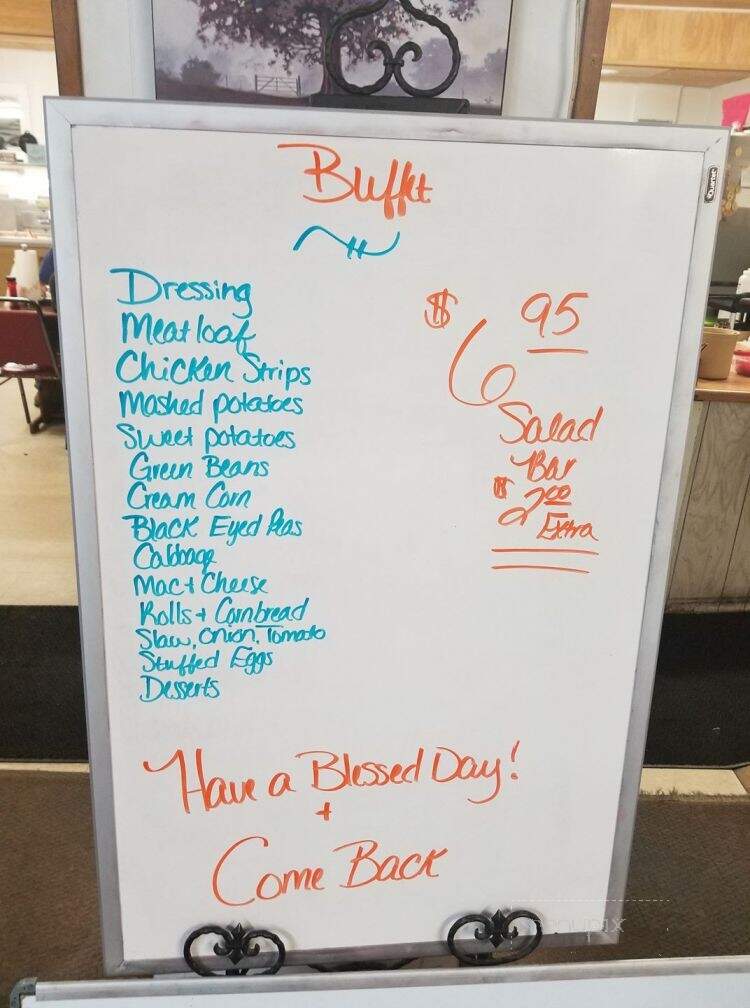 Buffet
Dressing
Meatloaf
Chicken Strips
Mashed potatoes
Sweet potatoes
Green Beans
Cream Corn
Black Eyed Peas
Cabbage
Mac + Cheese
Rolls + Cornbread
Slaw, Onion, Tomato
Stuffed Eggs
Desserts
$6 95
Salad
Bar
$2.00
Extra
Have a Blessed Day!
+
Come Back
Quartet